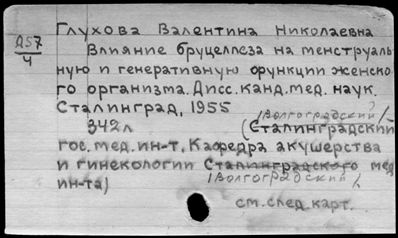 Глухова Валентина Николаевна
Д57
4
Влияние бруцеллеза на менструаль-
ную и генеративную функции женско-
го организма. Дисс. канд. мед. наук.
Сталинград, 1955
342л (Сталинградский /Волгоградский/
гос. мед. ин-т, Кафедра акушерства
и гинекологии Сталинградского мед
ин-та) /Волгоградский/
см. след. карт.